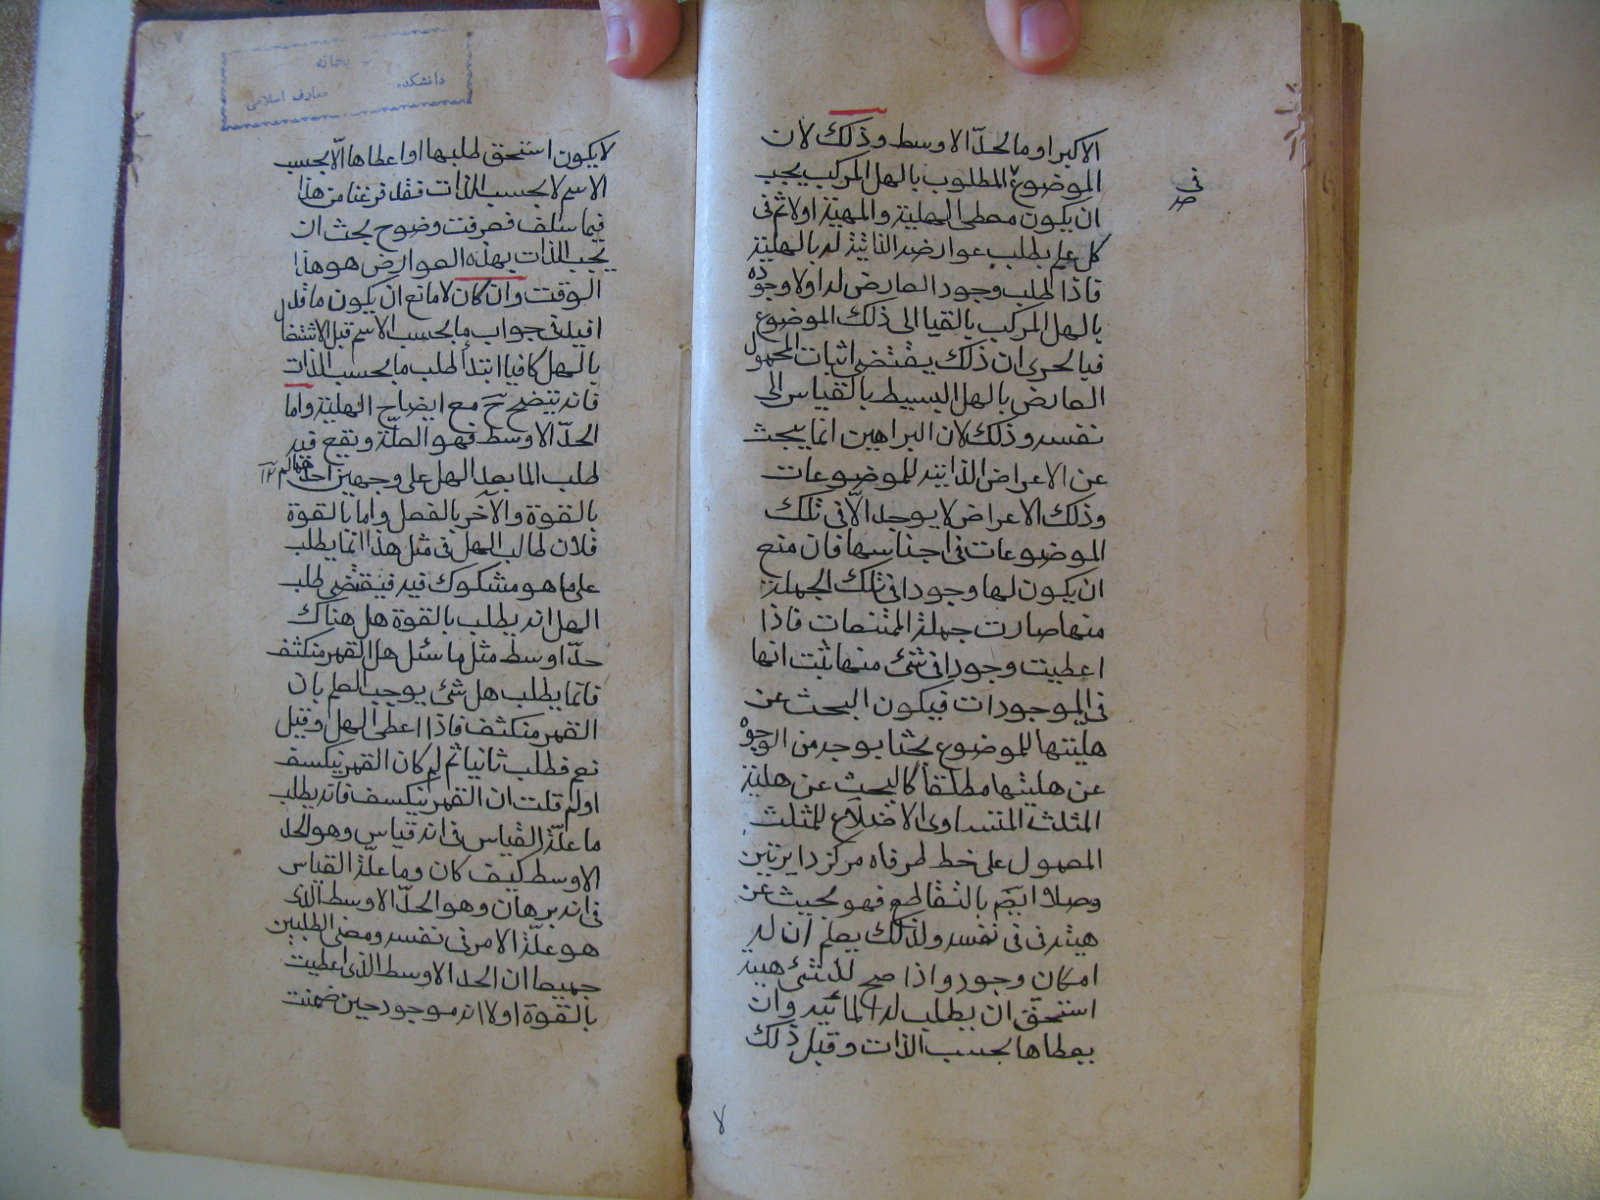 الاكبر او ما الحدّ الاوسط وذلك لان
الموضوع المطلوب بالهل المركب يجب
ان يكون معطى الهلية والمهية اولا ثم فى
كل علم يطلب عوارضه الذاتية له بالهلية
فاذا طلب وجود العارض له اولا وجوده
بالهل المركب بالقيا الى ذلك الموضوع
فبالحرى ان ذلك يقتضى اثبات المحمول
العارض بالهل البسيط بالقياس الى
نفسه وذلك لان البراهين انما يبحث
عن الاعراض الذاتية للموضوعات
وذلك الاعراض لا يوجد الّا فى تلك
الموضوعات فى اجناسها فان منع
ان يكون لها وجود فى تلك الجملة
منها صارت جملة الممتنعات فاذا
اعطيت وجودا فى شئ منها ثبت انها
فى الموجودات فيكون البحث عن
هليتها للموضوع بحثا بوجه من الوجوه
عن هليتها مطلقا كالبحث عن هلية
المثلث المتساوى الاضلاع للمثلث
المعمول على خط طرفاه مركز دايرتين
وصلا ايضم بالتقاطع فهو بحيث عن
هيئه فى نفسه ولذلك يعلم ان له
امكان وجود واذا صح للشئ هيئة
استحق ان يطلب له المائيه وان
يعطاها بحسب الذات وقبل ذلك
لا
فى
لا يكون استحق طلبها او اعطاها الّا بحسب
الاسم لا بحسب الذات فقد فرغنا من هذا
فيما سلف فعرفت وضوح بحث ان
يجب الذات بهذه العوارض هو هذا
الوقت وان كان لا مانع ان يكون ما قد
اقيل فى جواب ما بحسب الاسم قبل الاشتغال
بالهل كافيا ابتدأ لطلب ما بحسب الذات
فانه يتضح ح مع ايضاح الهلية واما
الحدّ الاوسط فهو العلّة ويقع فيه
طلب الما بعد الهل على وجهين احدهما
بالقوة والآخر بالفعل واما بالقوة
فلان طالب الهل فى مثل هذا انما يطلب
على ما هو مشكوك فيه فيقتضى طلب
الهل انه يطلب بالقوة هل هناك
حدّ اوسط مثل ما سئل هل القمر منكثف
فانما يطلب هل شئ يوجب العلم بان
القمر منكثف فاذا اعطى الهل وقيل
نعم فطلب ثانيا ثم لم كان القمر ينكسف
او لم قلت ان القمر ينكسف فانه يطلب
ما علّة القياس فى انه قياس وهو الحد
الاوسط كيف كان وما علّة القياس
فى انه برهان وهو الحدّ الاوسط الذى
هو علّة الامر فى نفسه ومعنى الطلبين
جميعا ان الحد الاوسط الذى اعطيت
بالقوة اولا انه موجود حين ضمنت
دانشكده
معارف اسلامى